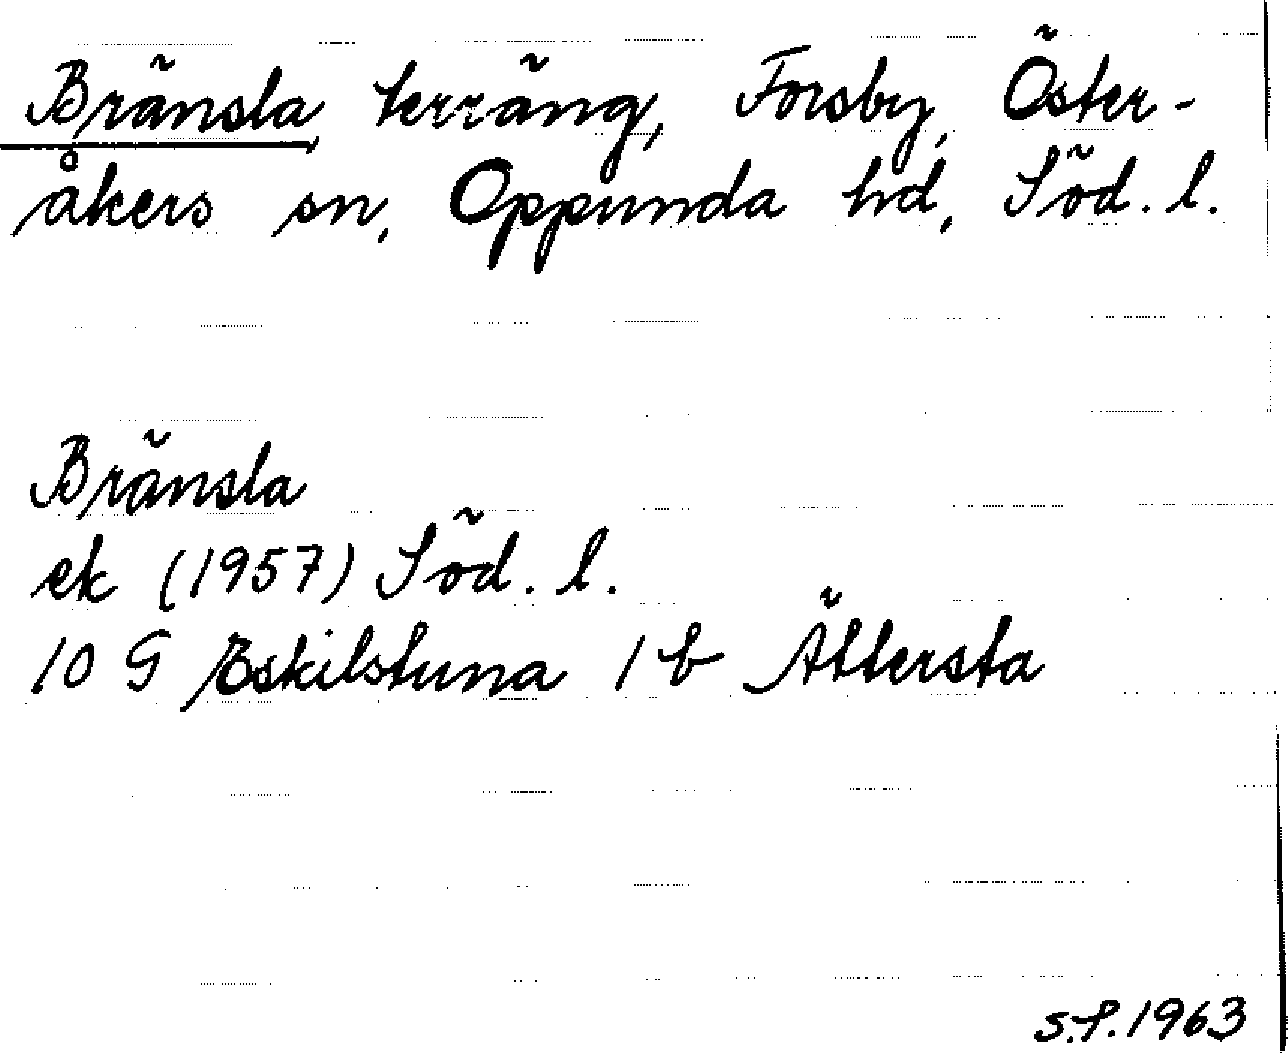 Bränsla, terräng, Forsby, Öster-
åkers sn, Oppunda hd, Söd. l.
Bränsla
ek (1957) Söd. l.
10 G Eskilstuna 1 b Ättersta
S.P. 1963